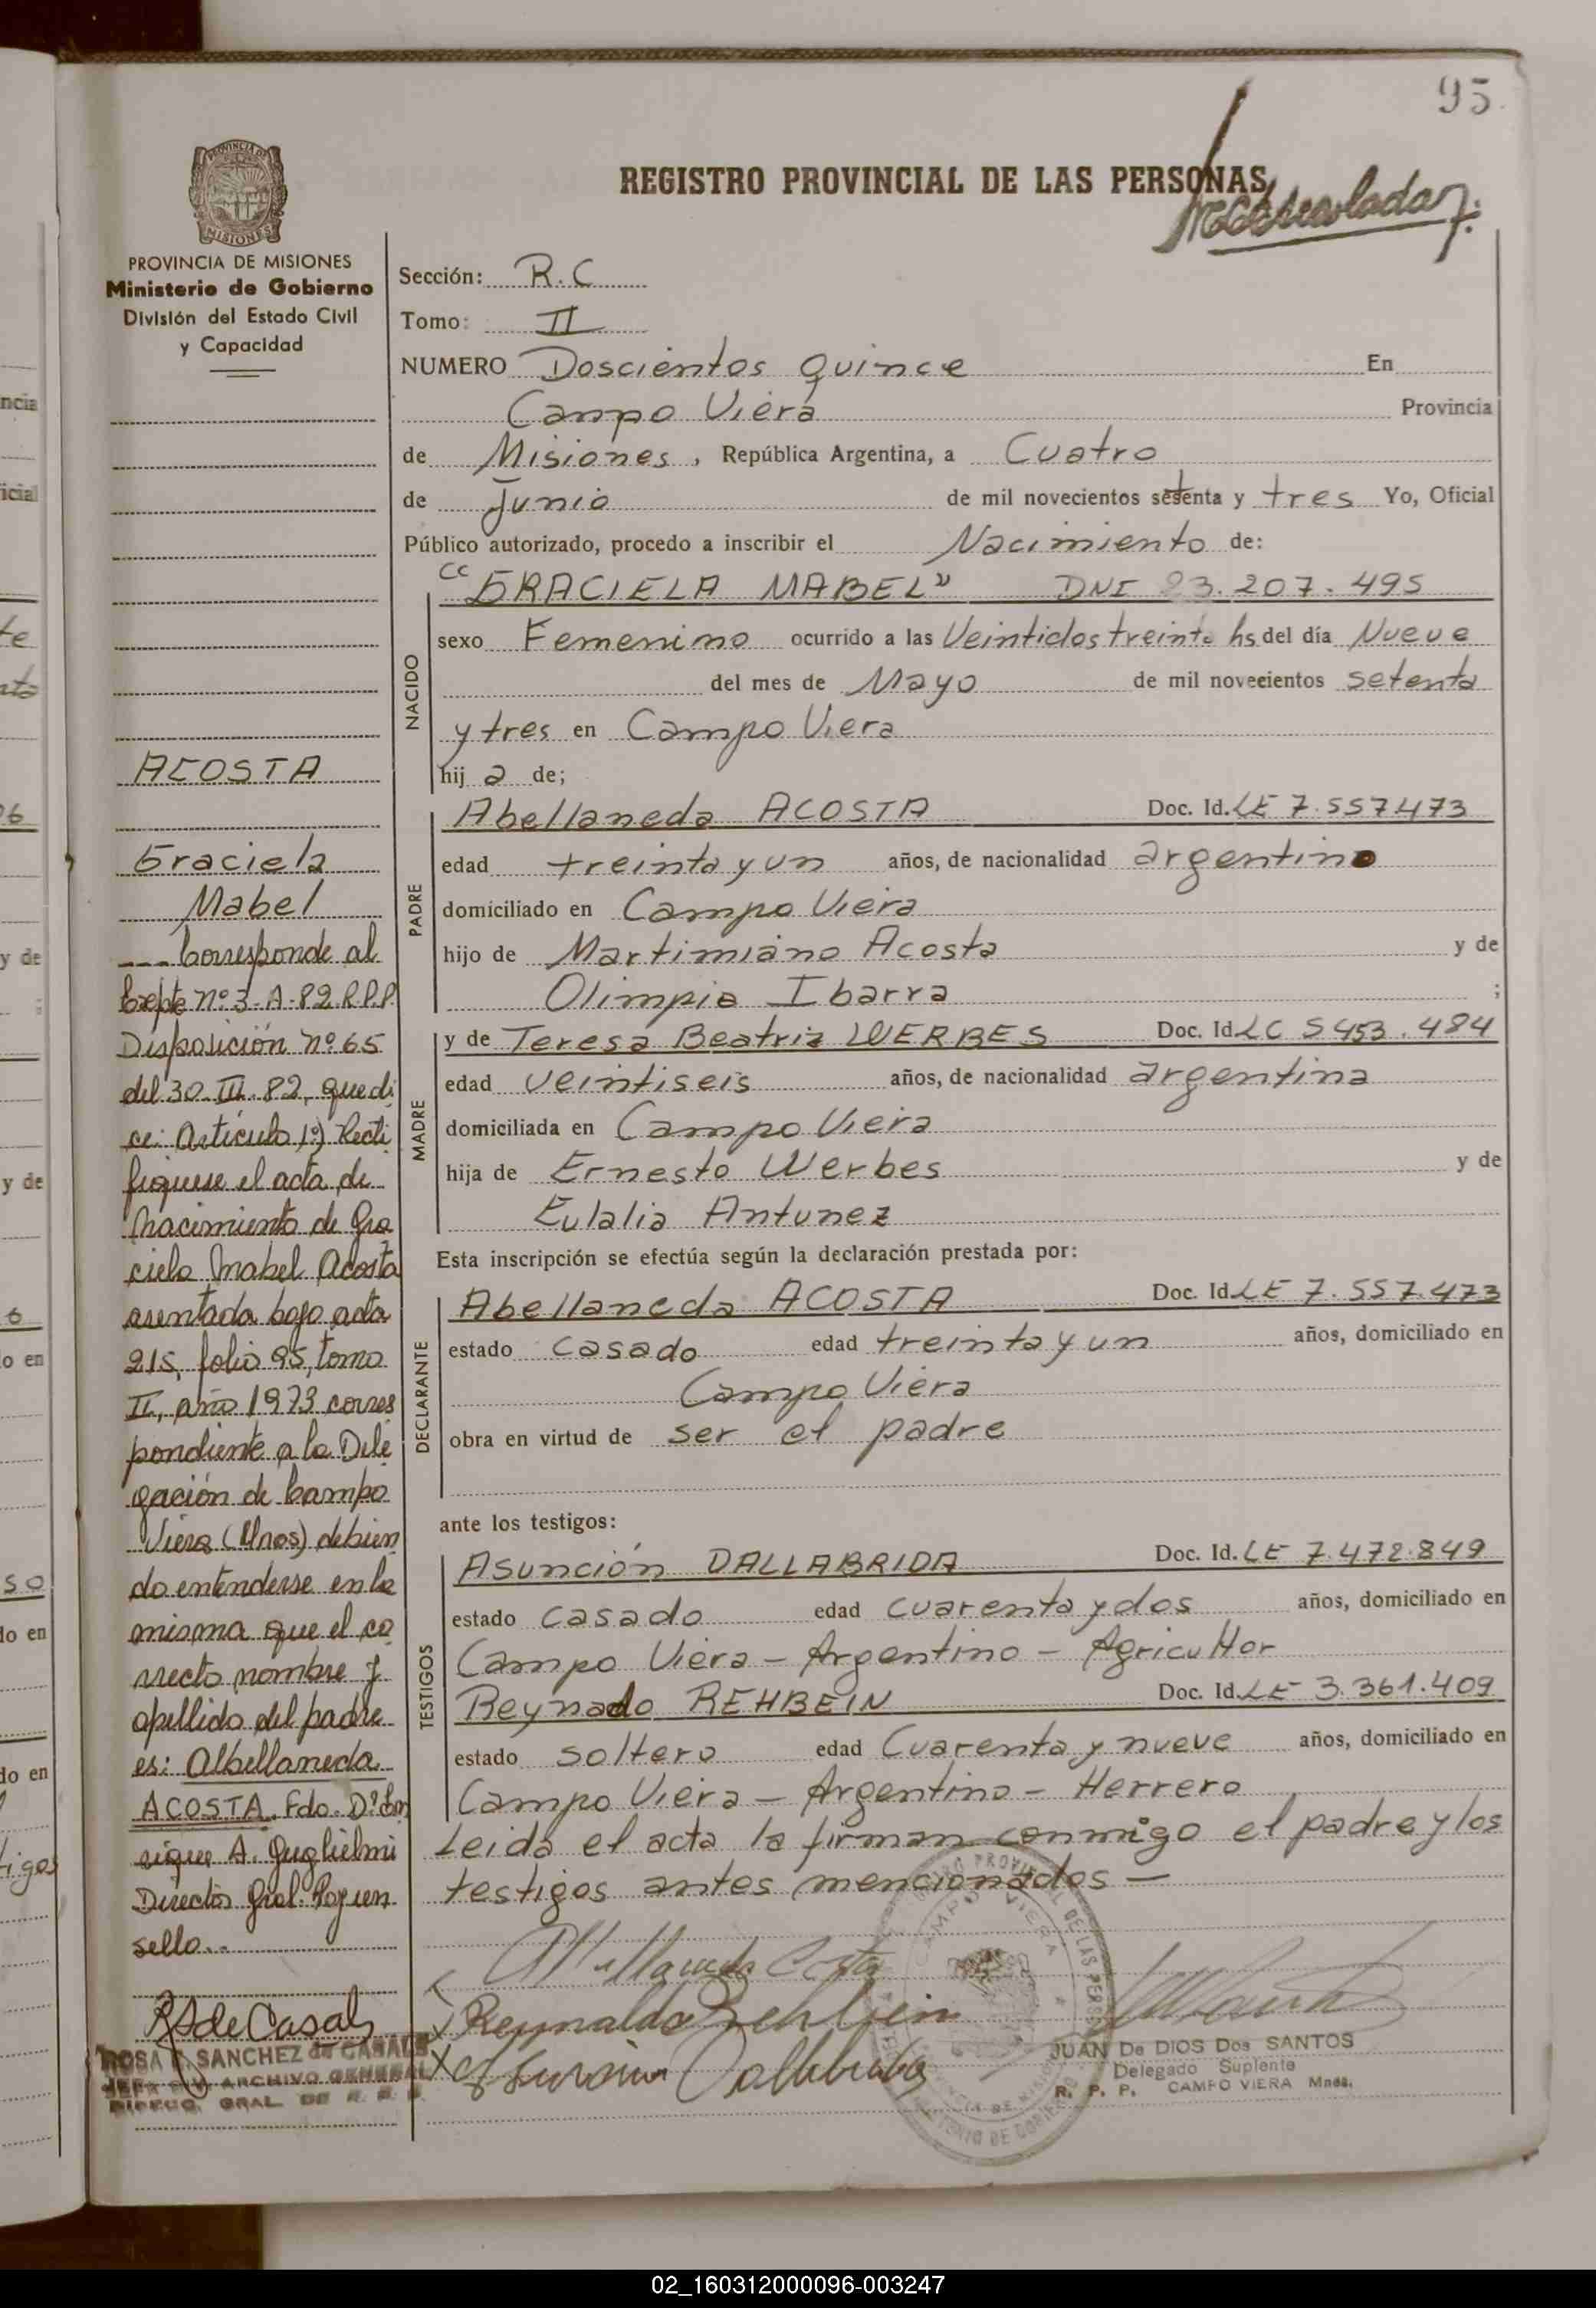 95
REGISTRO PROVINCIAL DE LAS PERSONAS
PROVINCIA DE MISIONES
Ministerio de Gobierno
División del Estado Civil
y Capacidad
Sección: R.C
Tomo: II
NUMERO Doscientos quince En
Campo Viera Provincia
de Misiones, República Argentina, a Cuatro
de Junio de mil novecientos setenta y tres Yo, Oficial
Público autorizado, procedo a inscribir el Nacimiento de:
"GRACIELA MABEL" DNI 23.207.495
NACIDO
sexo Femenino ocurrido a las Veintidos treinta hs del día Nueve
del mes de Mayo de mil novecientos setenta
y tres en Campo Viera
hij a de;
PADRE
Abellaneda ACOSTA Doc. Id. LE 7.557473
edad treinta y un años, de nacionalidad argentino
domiciliado en Campo Viera
hijo de Martimiano Acosta y de
Olimpia Ibarra ;
MADRE
y de Teresa Beatriz WERBES Doc. Id. LC 5453.484
edad veintiseis años, de nacionalidad argentina
domiciliada en Campo Viera
hija de Ernesto Werbes y de
Eulalia Antunez
Esta inscripción se efectúa según la declaración prestada por:
DECLARANTE
Abellaneda ACOSTA Doc. Id. LE 7.557.473
estado casado edad treinta y un años, domiciliado en
Campo Viera
obra en virtud de ser el padre
ante los testigos:
TESTIGOS
Asunción DALLABRIDA Doc. Id. LE 7.472.849
estado casado edad cuarenta y dos años, domiciliado en
Campo Viera - Argentino - Agricultor
Reynado REHBEIN Doc. Id. LE 3.361.409
estado soltero edad Cuarenta y nueve años, domiciliado en
Campo Viera - Argentino - Herrero
Leida el acta la firman conmigo el padre y los
testigos antes mencionados —
Reynaldo Rehbein
JUAN De DIOS Dos SANTOS
Delegado Suplente
R. P. P. CAMPO VIERA Mnes.
ACOSTA
Graciela
Mabel
--- Corresponde al
Expte nº 3-A-82 R.P.P.
Disposición nº 65
del 30-III-82, que di
ce: Artículo 1º) Recti
fíquese el acta de
nacimiento de Gra
ciela Mabel Acosta
asentada bajo acta
215, folio 95, tomo
II, año 1973 corres
pondiente a la Dele
gación de Campo
Viera (Mnes) debien
do entenderse en la
misma que el co
rrecto nombre y
apellido del padre
es: Albellaneda
ACOSTA. Fdo. Dº En
rique A. Guglielmi
Director Gral. Hay un
sello..
RSdeCasals
ROSA C. SANCHEZ de CASALS
JEFE DIV ARCHIVO GENERAL
DIRECC. GRAL DE R. P. P.
ncia
icial
te
y de
y de
6
o en
50
do en
do en
tigos
02_160312000096-003247